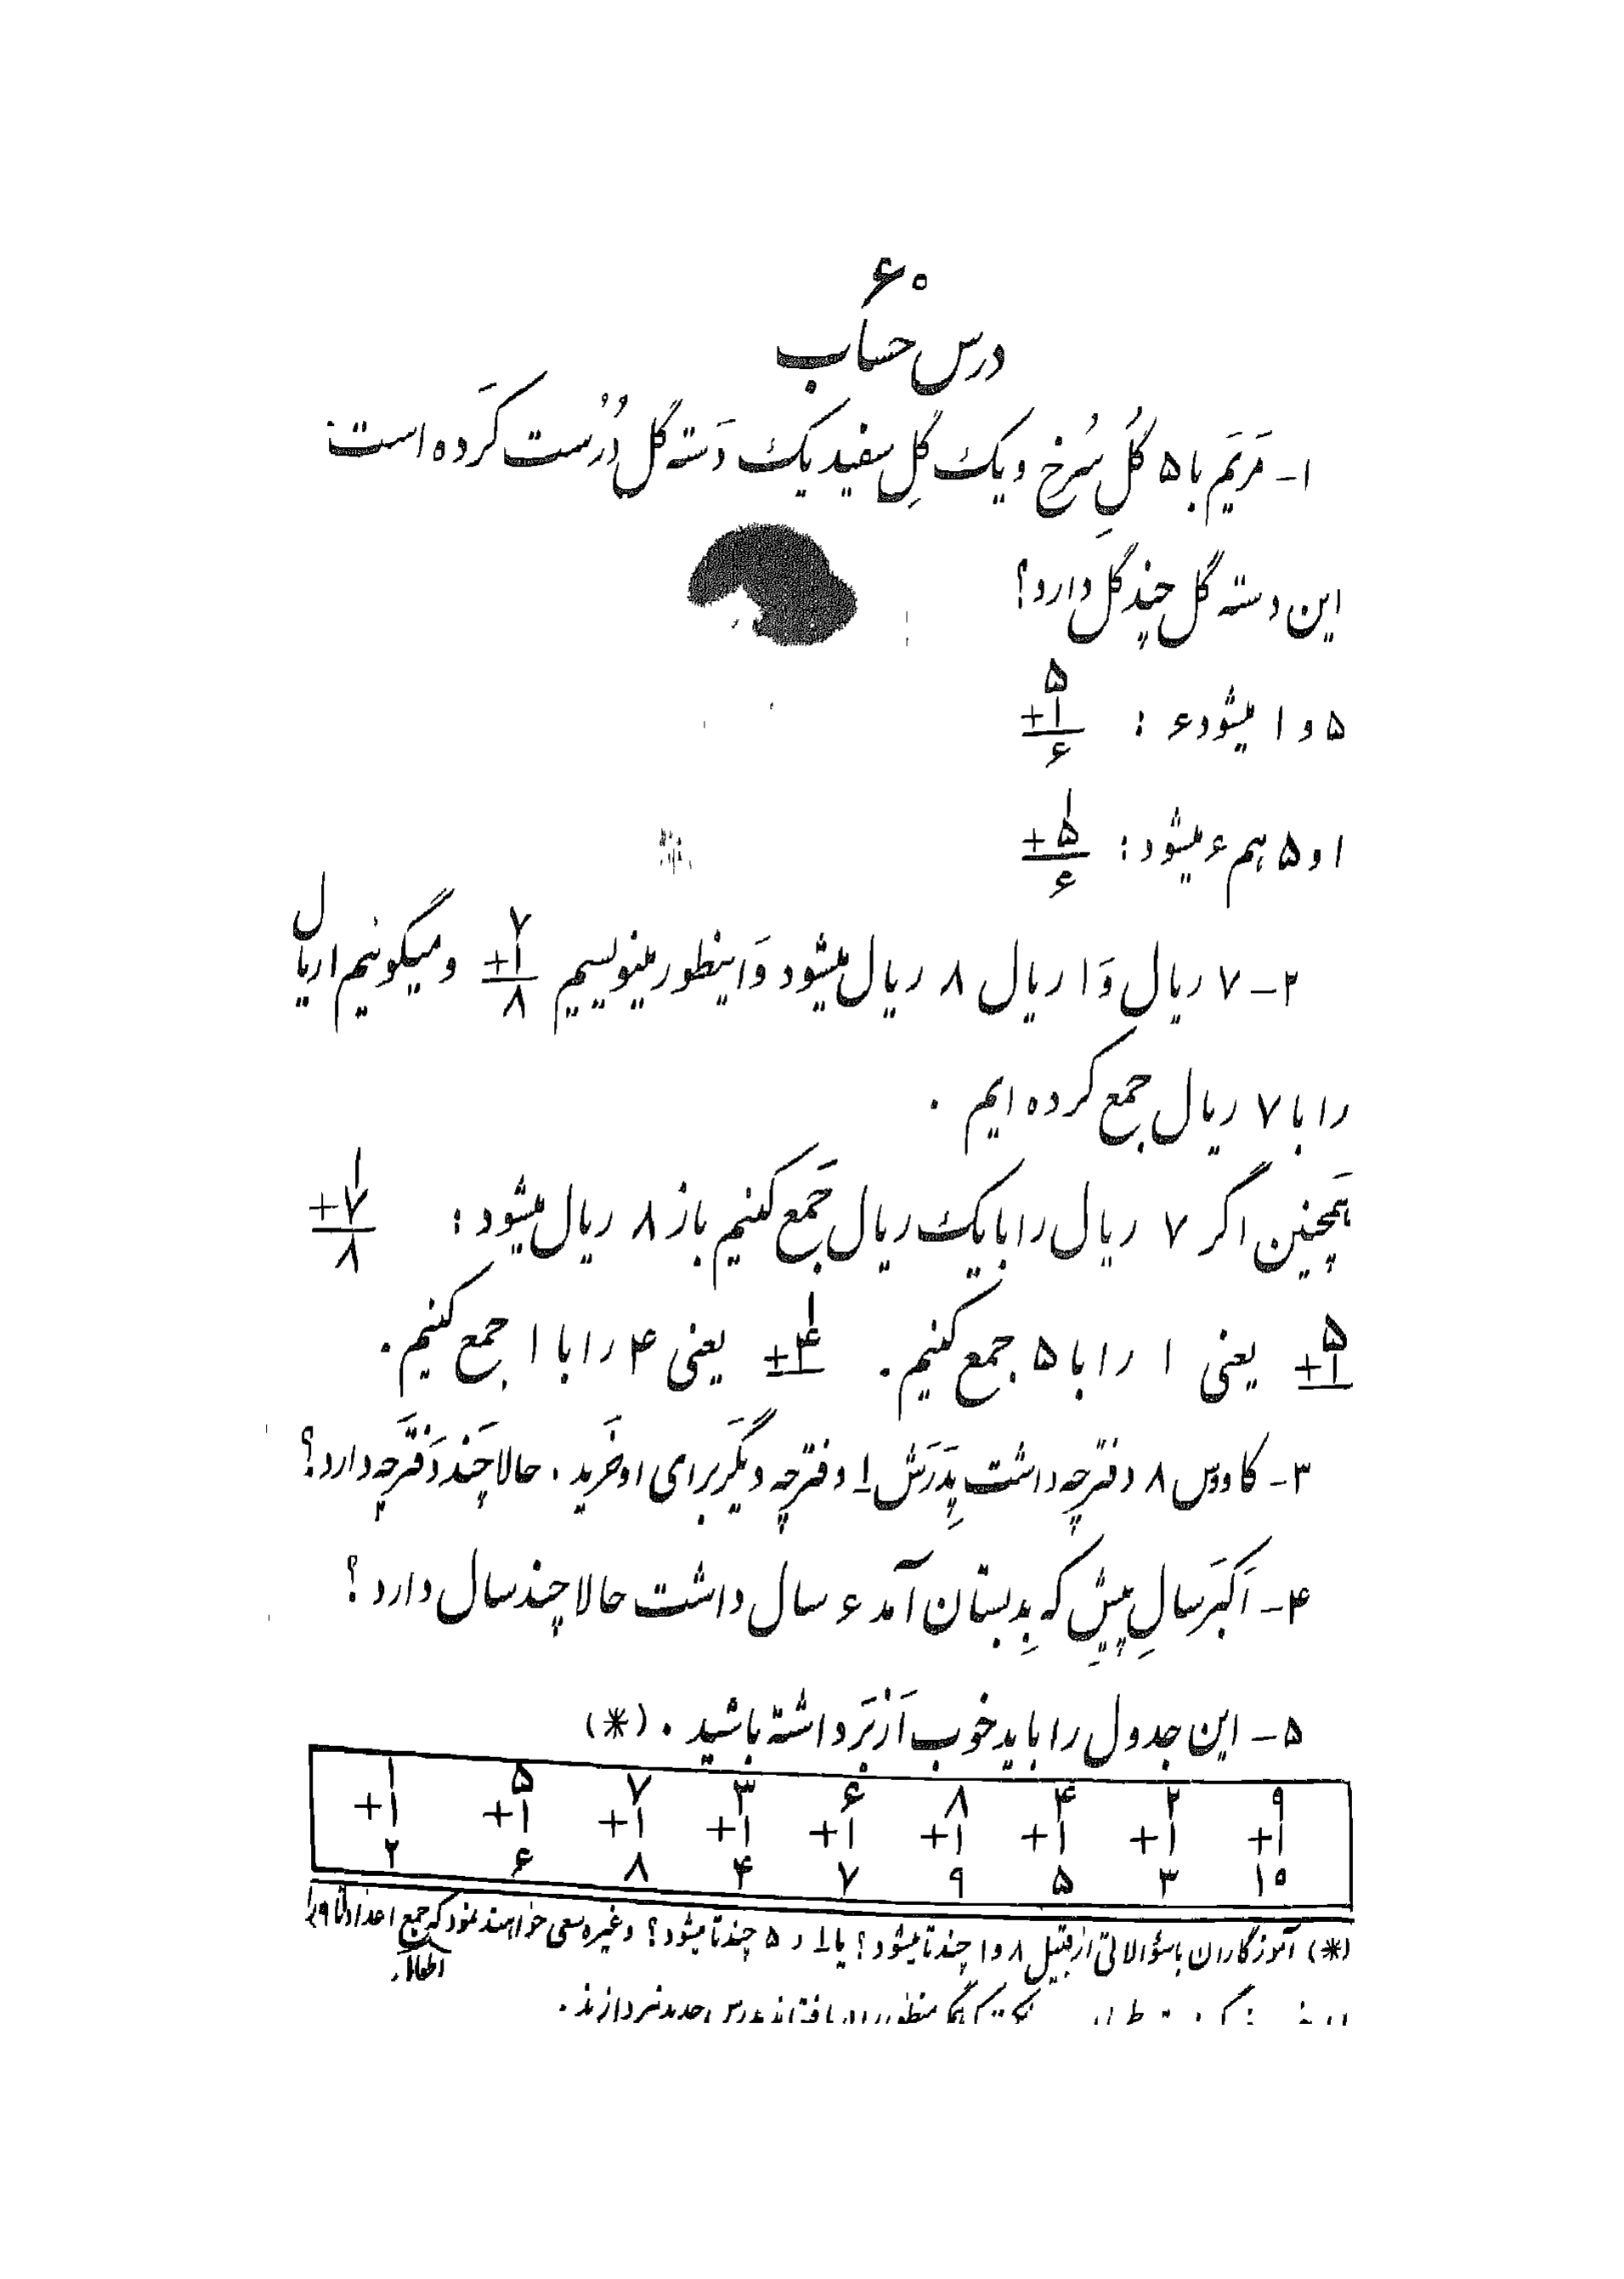 ۶۰
درس حساب
۱- مَریَم با ۵ گُلِ سُرخ و یک گلِ سفید یک دَسته گل دُرُست کَرده است.
این دسته گل چند گل دارد؟
۵
۵ و ۱ میشود ۶ : +۱
۶
۱
۱ و ۵ هم ۶ میشود : +۵
۶
۲- ۷ ریال وَ ۱ ریال ۸ ریال میشود وَ اینطور مینویسیم ۷ +۱ ۸ و میگوئیم ۱ ریال
را با ۷ ریال جمع کرده ایم .
هَمچنین اگر ۷ ریال را با یک ریال جَمع کنیم باز ۸ ریال میشود : ۱ +۷ ۸
۵ +۱ یعنی ۱ را با ۵ جمع کنیم. ۱ +۴ یعنی ۴ را با ۱ جمع کنیم.
۳- کاووس ۸ دفترچه داشت پِدَرَش ۱ دفترچه دیگَر برای او خَرید . حالا چَند دَفتَرچه دارد؟
۴- اَکبَر سالِ پیش که بِدبستان آمد ۶ سال داشت حالا چند سال دارد ؟
۵- این جدول را باید خوب اَز بَر داشته باشید . (*)
۹ ۲ ۴ ۸ ۶ ۳ ۷ ۵ ۱
+۱ +۱ +۱ +۱ +۱ +۱ +۱ +۱ +۱
۱۰ ۳ ۵ ۹ ۷ ۴ ۸ ۶ ۲
(*) آموزگاران با سؤالاتی از قبیل ۸ و ۱ چند تا میشود ؟ یا ۱ و ۵ چند تا میشود ؟ و غیره سعی خواهند نمود که جمع اعداد تا ۹ را
اطفال